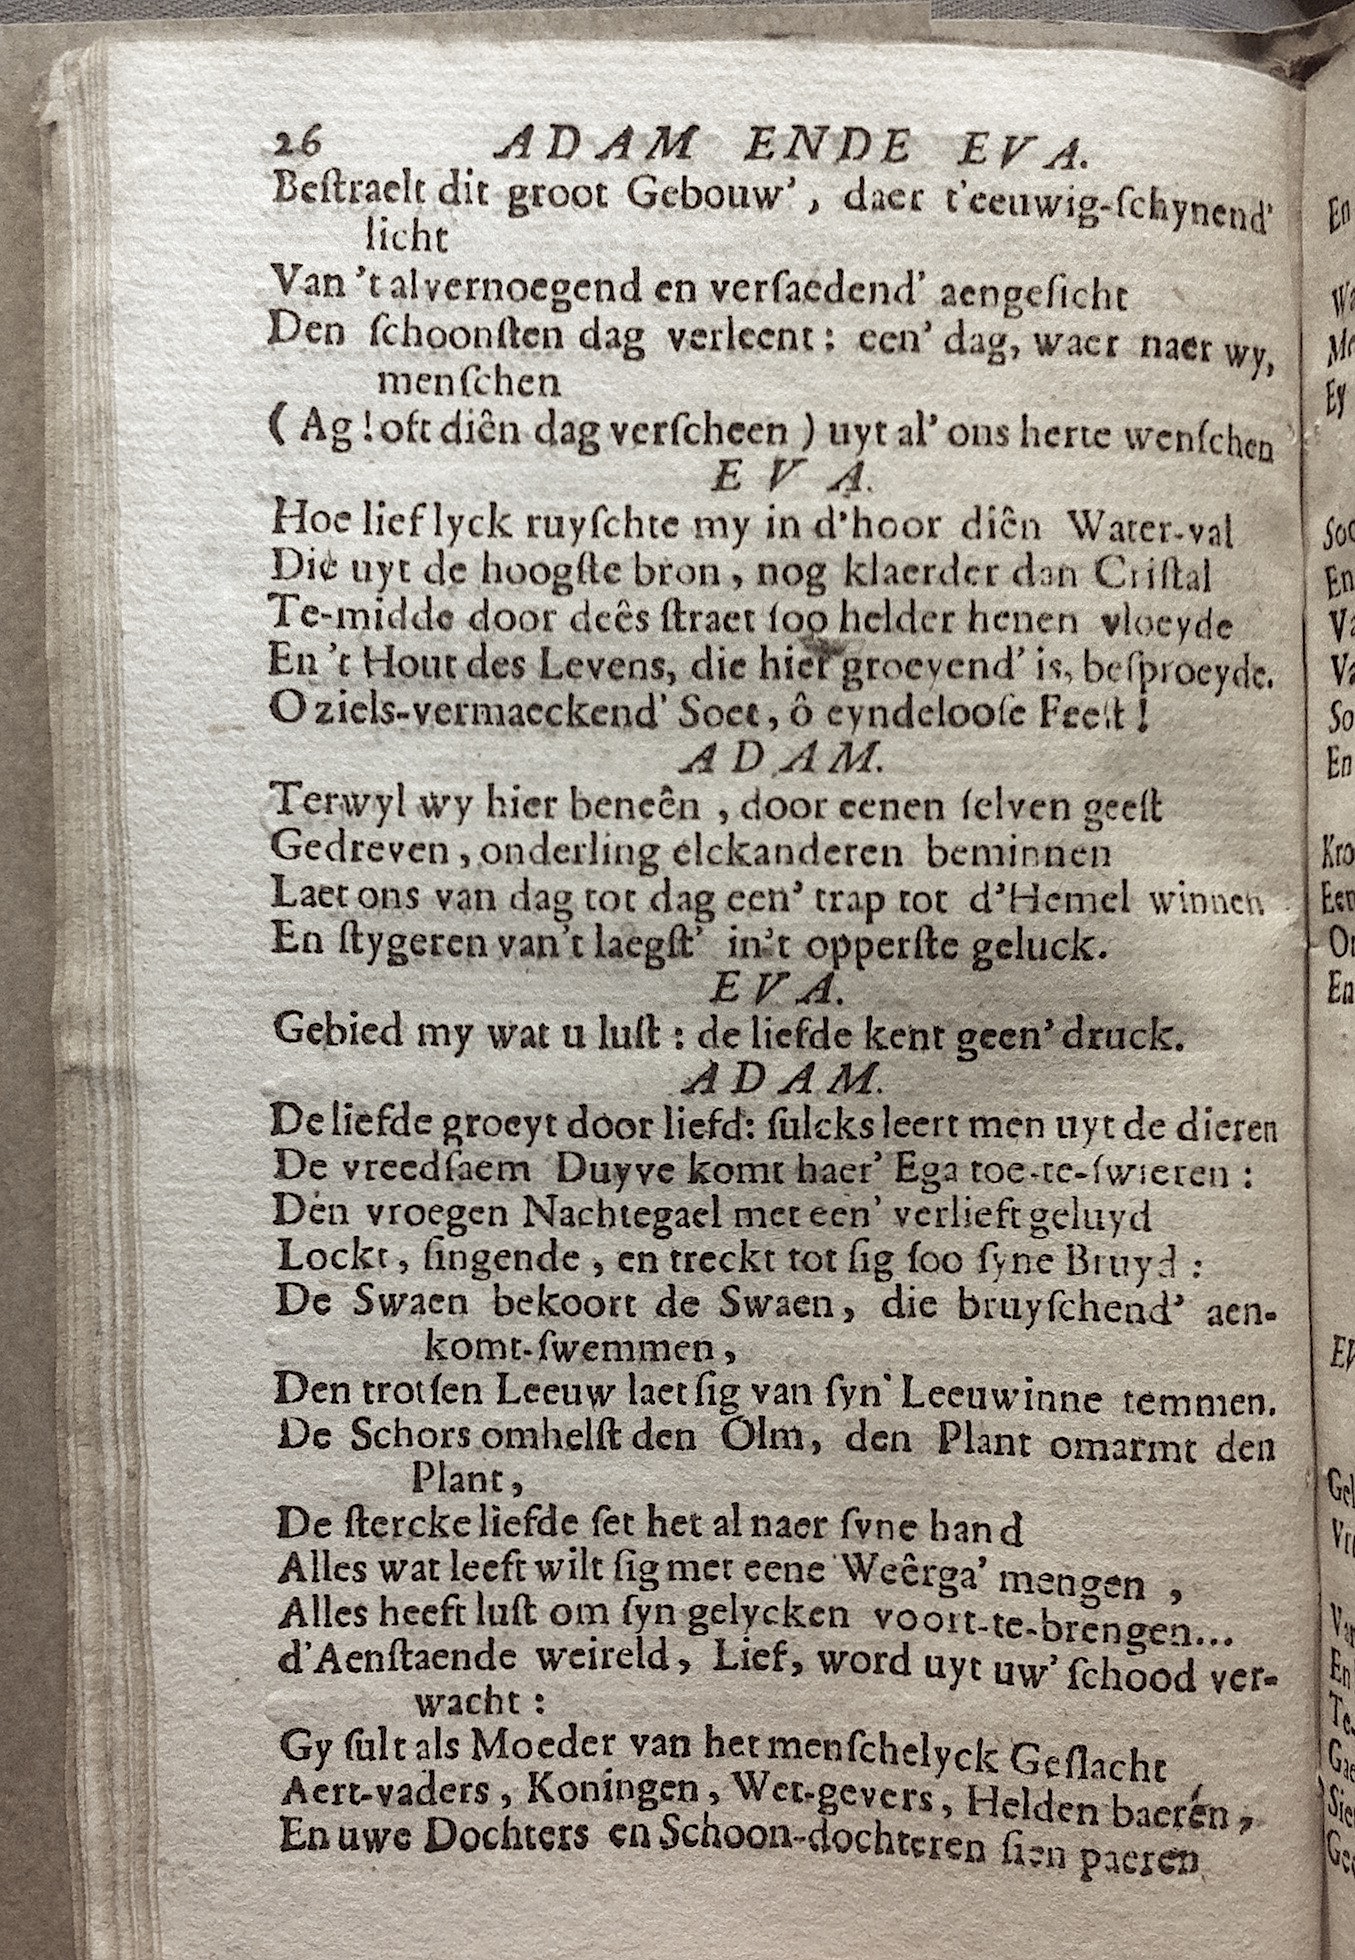 26 ADAM ENDE EVA.
Beſtraelt dit groot Gebouw', daer t'eeuwig-ſchynend'
licht
Van 't alvernoegend en verſaedend' aengeſicht
Den ſchoonſten dag verleent: een' dag, waer naer wy,
menſchen
(Ag! oft diên dag verſcheen) uyt al' ons herte wenſchen
EVA.
Hoe lieflyck ruyſchte my in d'hoor diên Water-val
Die uyt de hoogſte bron, nog klaerder dan Criſtal
Te-midde door deês ſtraet ſoo helder henen vloeyde
En 't Hout des Levens, die hier groeyend' is, beſproeyde.
O ziels-vermaeckend' Soet, ô eyndelooſe Feeſt!
ADAM.
Terwyl wy hier beneên, door eenen ſelven geeſt
Gedreven, onderling elckanderen beminnen
Laet ons van dag tot dag een' trap tot d'Hemel winnen
En ſtygeren van't laegſt' in't opperſte geluck.
EVA.
Gebied my wat u luſt: de liefde kent geen' druck.
ADAM.
De liefde groeyt door liefd: ſulcks leert men uyt de dieren
De vreedſaem Duyve komt haer' Ega toe-te-ſwieren:
Den vroegen Nachtegael met een' verlieft geluyd
Lockt, ſingende, en treckt tot ſig ſoo ſyne Bruyd:
De Swaen bekoort de Swaen, die bruyſchend' aen-
komt-ſwemmen,
Den trotſen Leeuw laet ſig van ſyn' Leeuwinne temmen.
De Schors omhelſt den Olm, den Plant omarmt den
Plant,
De ſtercke liefde ſet het al naer ſyne hand
Alles wat leeft wilt ſig met eene Weêrga' mengen,
Alles heeft luſt om ſyn gelycken voort-te-brengen...
d'Aenſtaende weireld, Lief, word uyt uw' ſchood ver-
wacht:
Gy ſult als Moeder van het menſchelyck Geſlacht
Aert-vaders, Koningen, Wet-gevers, Helden baeren,
En uwe Dochters en Schoon-dochteren ſien paeren